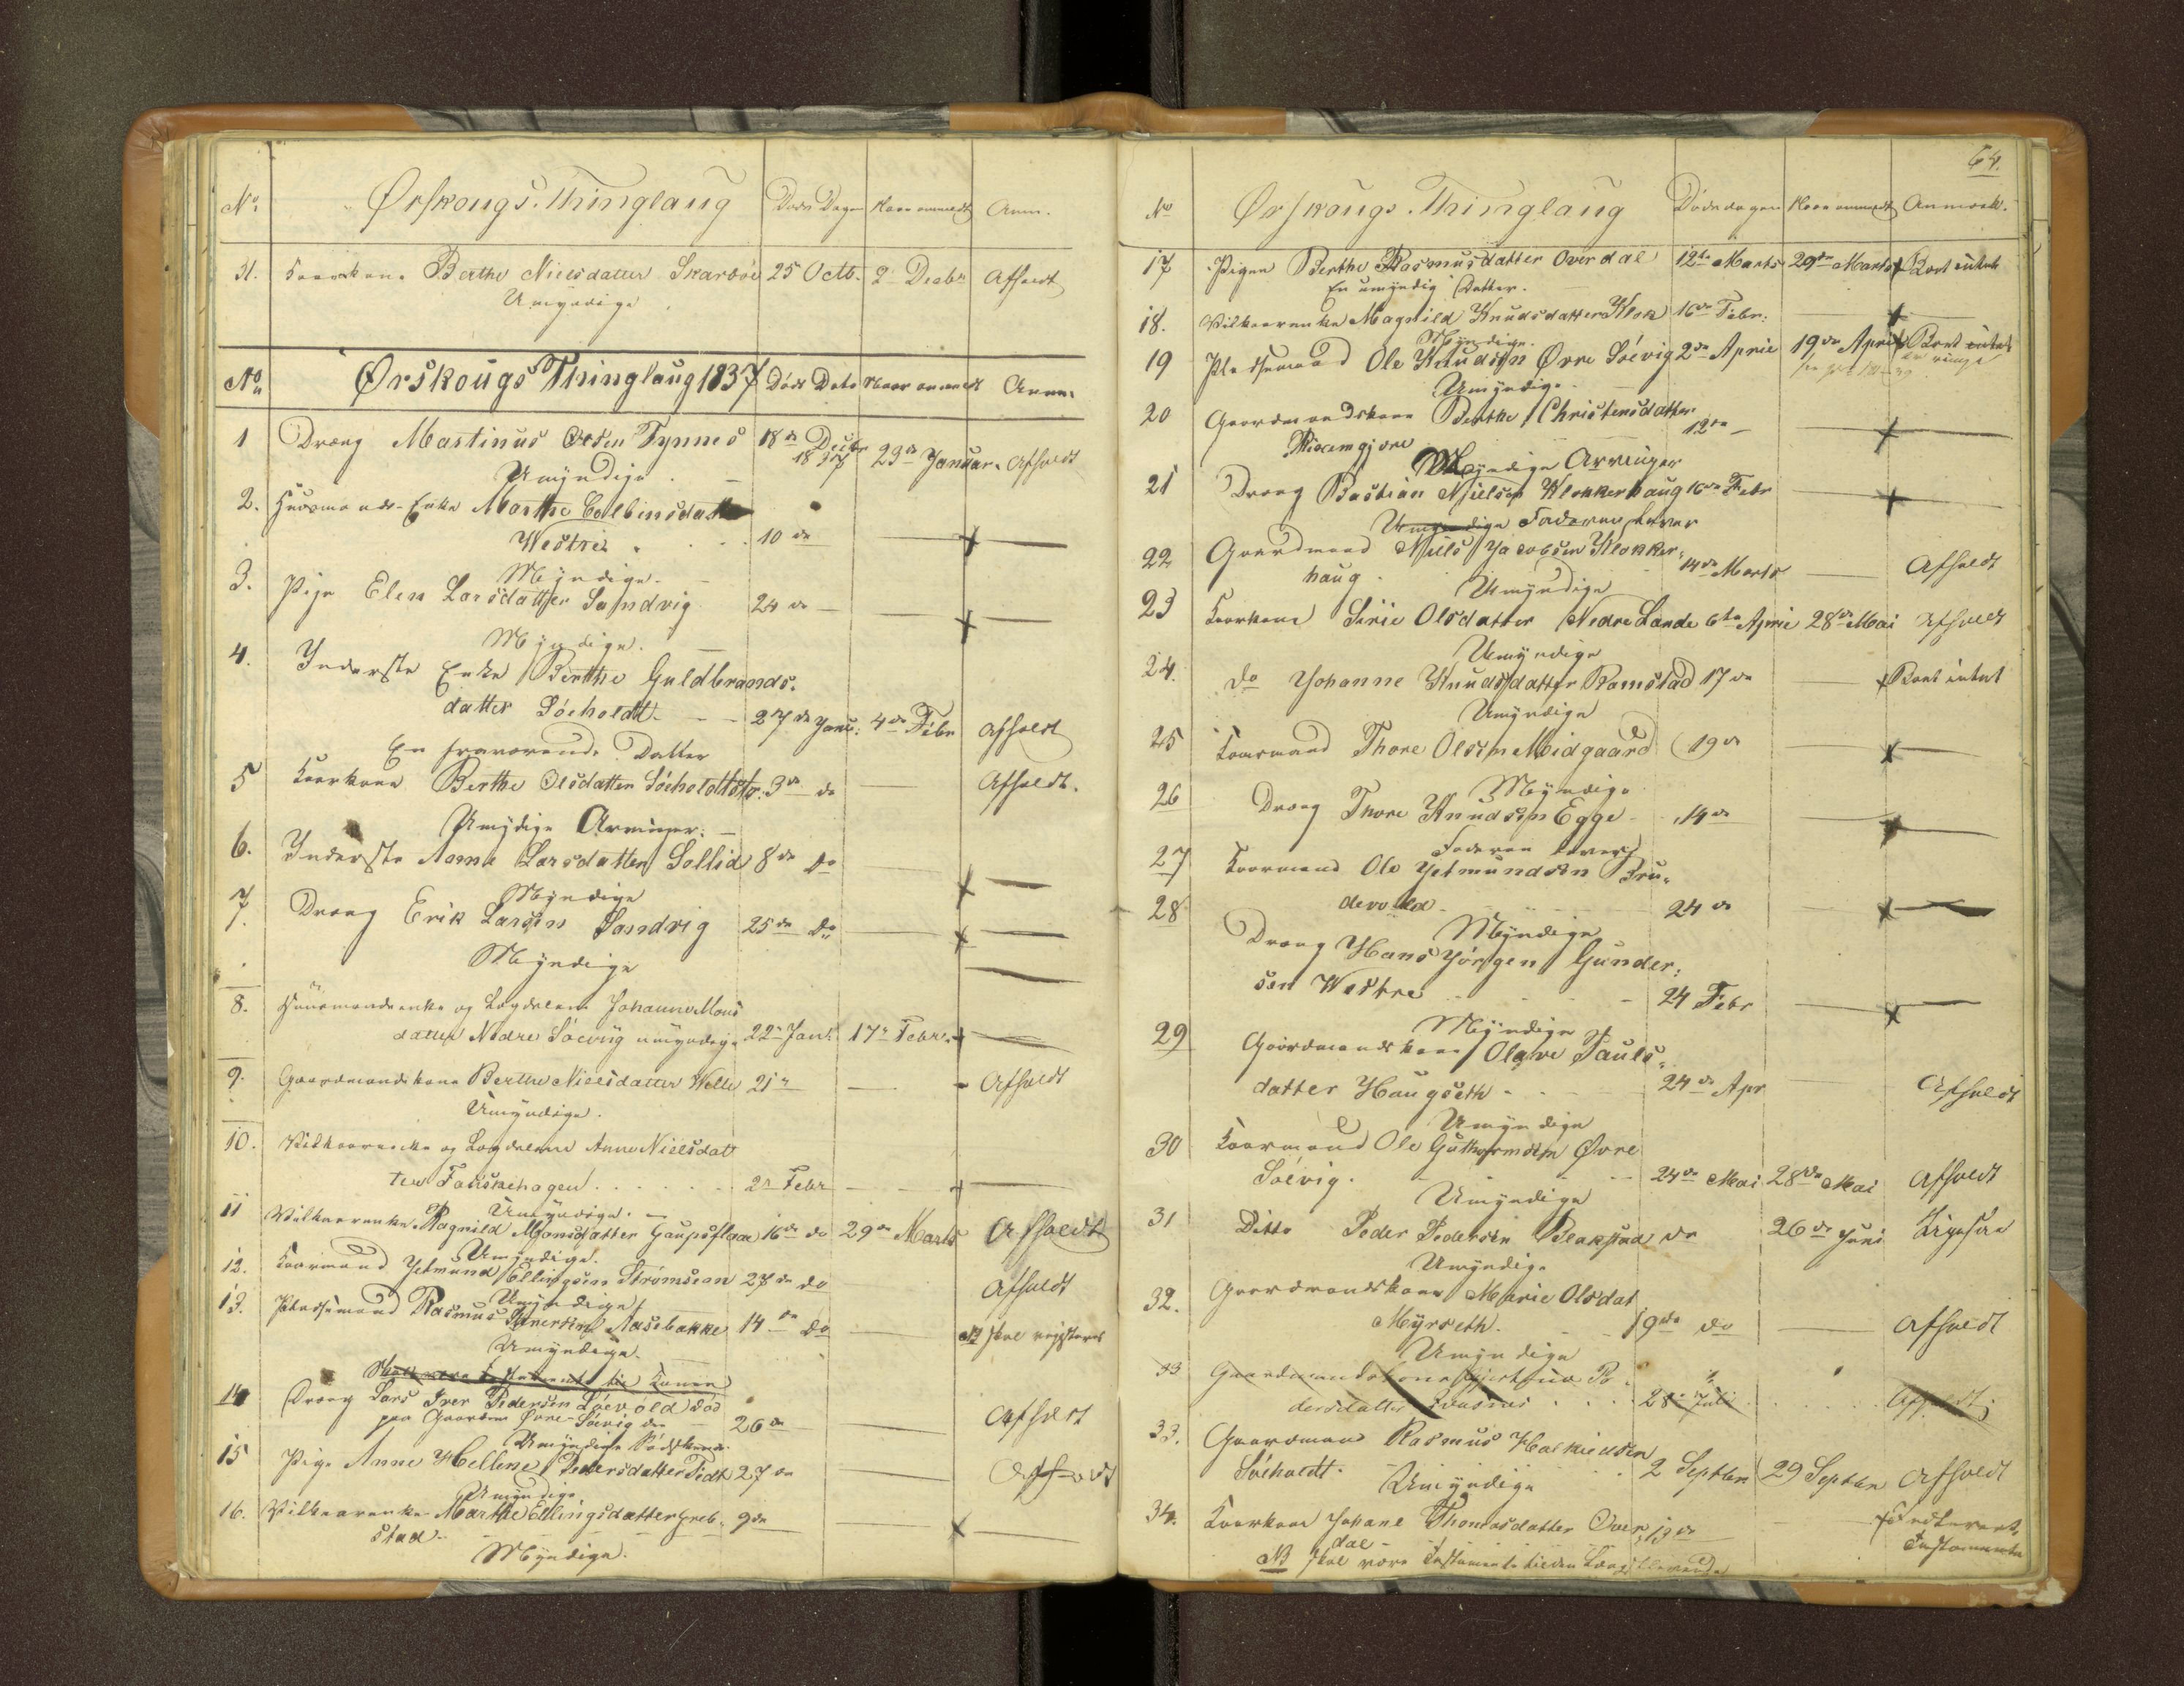 No. Ørskougs Thinglaug Døds Dagen Naar anmeldt Anm.
31. Kaarkone Berthe Nielsdatter Skarbøe 25 Octb. 2 Decbr Afholdt
Umyndige
No. Ørskougs Thinglaug 1837 Døds Dato Naar anmeldt Anm.
1 Dreng Mastinus Olsen Tynnes 18de Decbr 23de Januar. Afholdt
Umyndige
2. Huusmands-Enke Marthe
Westre 10de
Myndige.
3. Pige Elen Larsdatter Sandvig 24de
Myndige.
4. Inderste Enke Berthe Guldbrands-
datter Søeholdt 27de Janu: 4de Febr Afholdt
En fraværende Datter
5 Kaarkone Berthe Olsdatter 3de do Afholdt.
Umydige Arvinger.
6. Inderste Anne Larsdatter Sollid 8de do
Myndige
7. Dreng Erik Larsen Sandvig 25de do
Myndige
8. Huusmandsenke og Lægdslem Johanne Mons
datter Nedre Søevig umyndige 22de Janr 17de Febr.
9. Gaardmandskone Berthe Nielsdatter Welle 21de Afholdt
Umyndige.
10. Vilkaarenke og Lægdslem Anne Nielsdat
ter Fauskehagen 2de Febr
Umyndige.
11 Vilkaarenke Ragnild Monsdatter Gaupsflaae 16de do 29de Marts Afholdt
Umyndige.
12. Kaarmand Jetmund Ellingsen Strømsean 27de do Afholdt
Umyndige
13. Pladsemand Rasmus Aasebakke 14de do NB skal registeres
Umyndige.
Skal være Testamente til Konen
14 Dreng Lars Iver Pedersen Løevold død
paa Gaarden Øvre-Søevig 26de Afholdt
Umyndige Sødskende.
15 Pige Anne Hellene Pedersdatter 27de Afholdt
Umyndige
16. Vilkaarenke Marthe Ellingsdatter Greb- 9de
stad.
Myndige.
64.
No Ørskougs Thinglaug Dødsdagen Naar anmeldt Anmærk.
17 Pigen Berthe Rasmusdatter Overdal 12te Marts 29de Marts Boet intet
En umyndig Datter.
18. Vilkaarenke Magnild Knudsdatter Klok 16de Febr:
Myndige.
19 Pladsemand Ole Knudsen Øvre Søevig 2de April 19de April Boet intet
Umyndige
20 Gaardmandskone Berthe Christensdatter
12te
Myndige Arvinger
21 Dreng Bastian Nielsen Klokkerhaug 16de Febr
Umyndige Faderen lever
22 Gaardmand Niels Jacobsen Klokker-
haug. 14de Marts Afholdt
Umyndige
23 Kaarkone Sirie Olsdatter Nedre Lande 6te April 28de Mai Afholdt
Umyndige
24. do Johanne Knudsdatter Ramstad 17de Boet intet
Umyndige
25 Kaarmand Thore Olsen Meidgaard 19de
Myndige
26 Dreng Thore Knudsen Egge 14de
Faderen lever
27 Kaarmand Ole Jetmundsen Bru-
devold 24de
Myndige
28 Dreng Hans Jørgen Gunder-
sen Westre 24 Febr
Myndige
29 Gaardmandskone Olave Pauls-
datter Haugseth 24de Apr Afholdt
Umyndige
30 Kaarmand Ole Guthormsen Øvre
Søevig. 24de Mai 28de Mai Afholdt
Umyndige
31 Ditto Peder Pedersen do 26de Juni
Umyndige
32. Gaardmandskone Marie Olsdat
Myrseth. 19de do Afholdt
Umyndige
33 Gaardmandskone Pe-
dersdatter 28de Juli Afholdt
33. Gaardmand Rasmus
Søeholdt. 2 Septbr 29 Septbr Afholdt
Umyndige
34. Kaarkone Johane Thomasdatter Over- 13de
dal Testamente
NB skal være Testamente til den Længstlevende